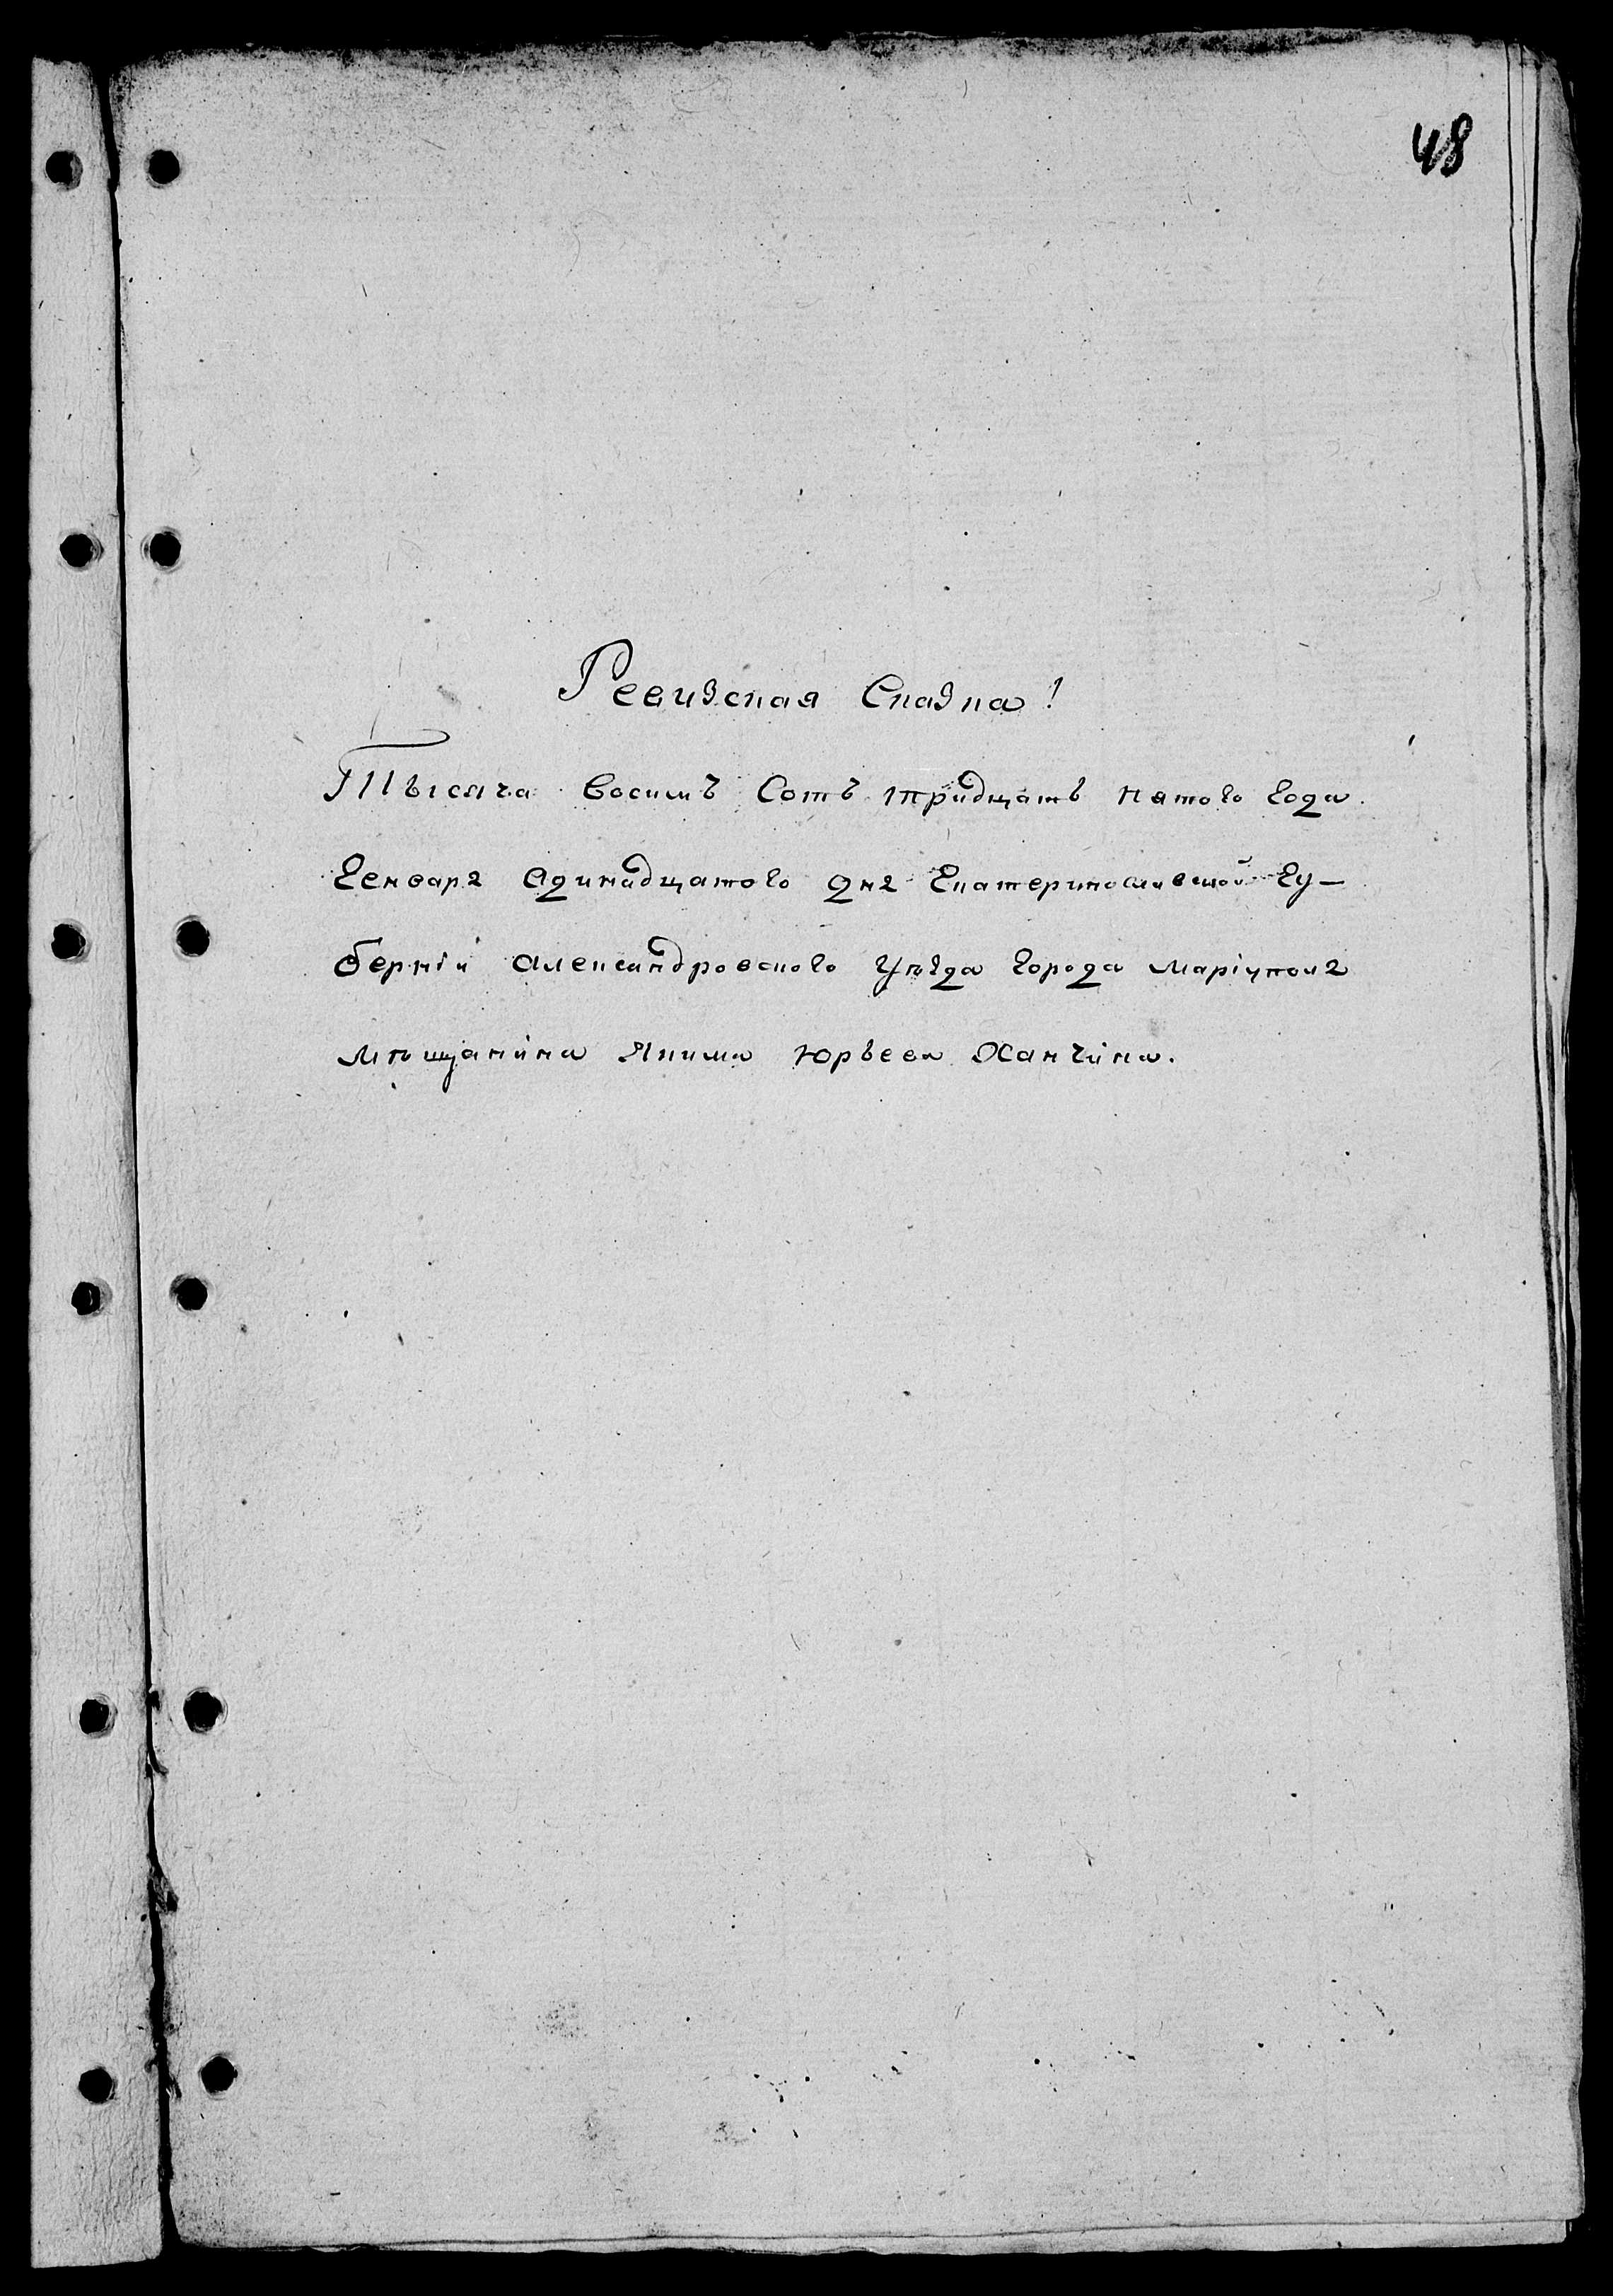 48
Ревизская Сказка!
Тысяча восимъ Сотъ тридцать пятого года
Генваря адинадцатого дня Екатеринославской Гу-
берніи Александровского уѣзда города Маріуполя
мѣщанина Якима Юрьева Ханчина.